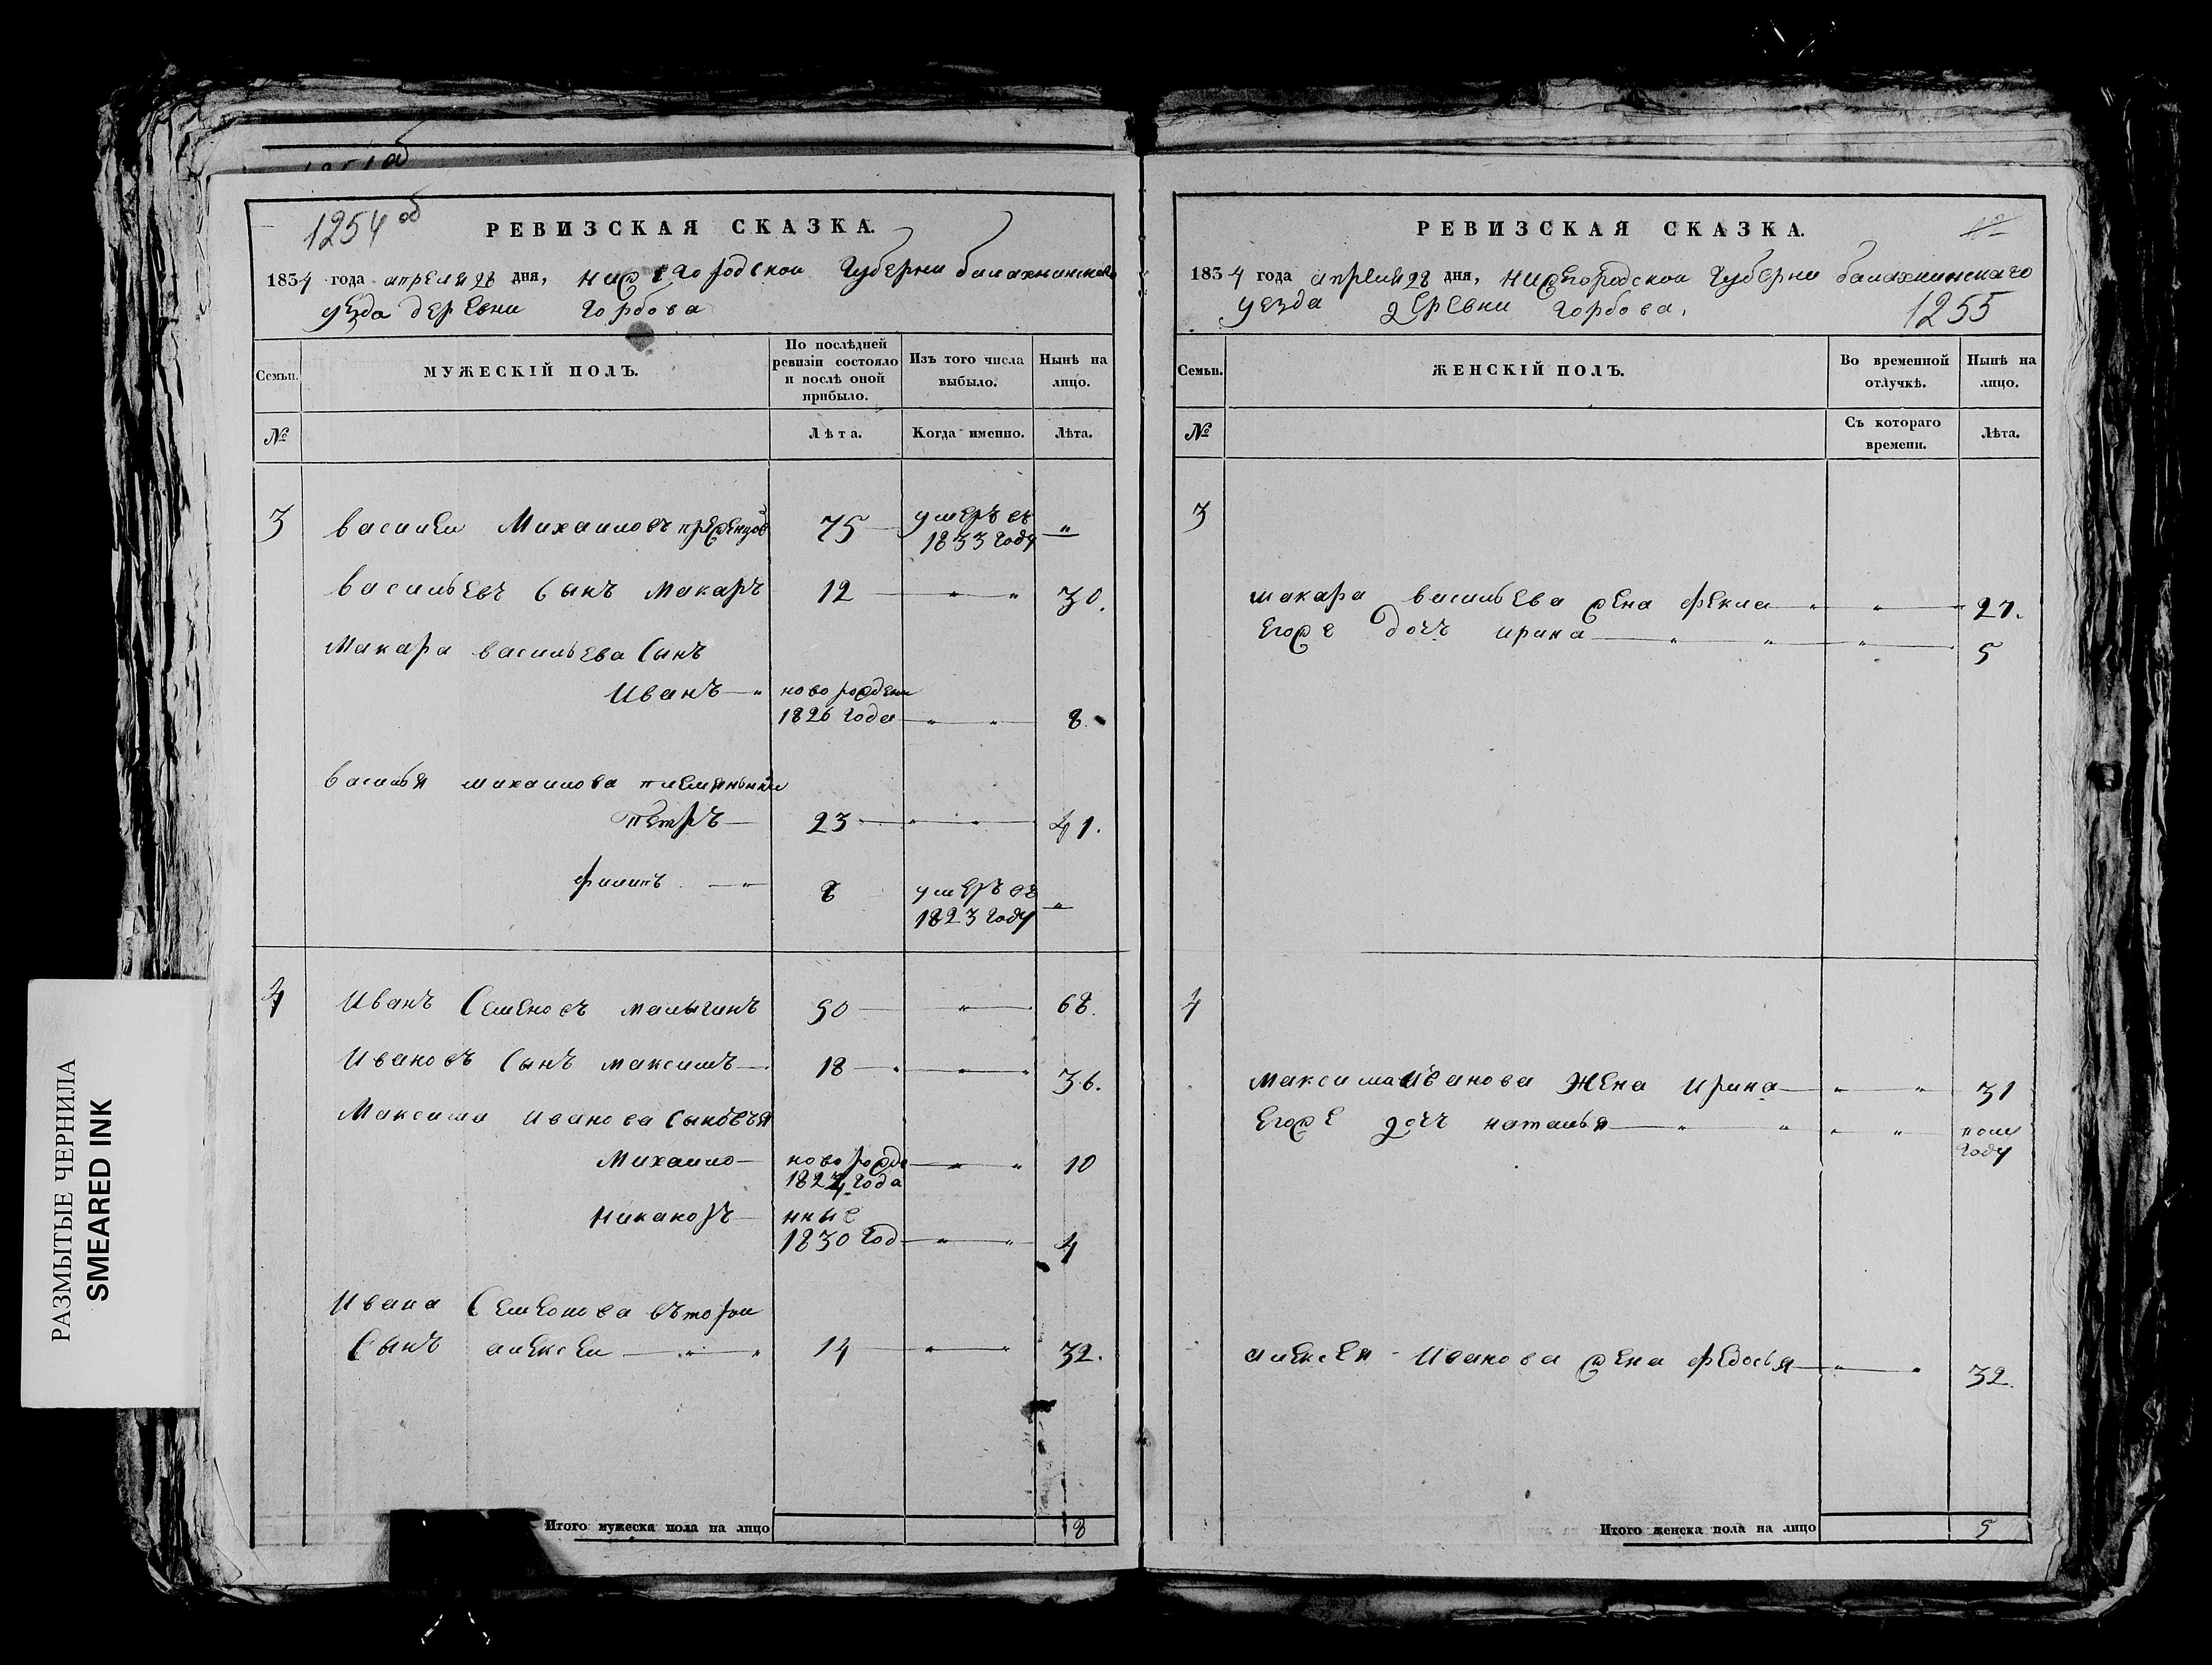 1254 об
РЕВИЗСКАЯ СКАЗКА.
1834 года апреля 28 дня, нижегородскои губерни балахнинскаго
уезда деревни Горбова
Семьи. МУЖЕСКІЙ ПОЛЪ. По послѣдней ревизіи состояло и послѣ оной прибыло. Изъ того числа выбыло. Нынѣ на лицо.
№ Лѣта. Когда именно. Лѣта.
3 василеи Михаиловъ 75 умеръ въ
1833 году "
васильевъ сынъ Макаръ 12 " " 30.
Макара васильева Сынъ
Иванъ " новорождени
1826 года " " 8.
василья михаилова племянники
петръ 23 " " 41.
филипъ " 8 умеръ въ
1823 году "
4 Иванъ Семеновъ малыгинъ 50 " 68.
Ивановъ Сынъ максимъ 18 " " " 36.
Максима иванова сыновья
Михаило новорожде
1824 года " " 10
Никаноръ нные
1830 год " " 4
Ивана Семенова въторои
Сынъ алексеи " " 14 " " 32.
Итого мужеска пола на лицо 8
РЕВИЗСКАЯ СКАЗКА.
1834 года апреля 28 дня, нижегородскои губерни балахнинскаго
уезда деревни горбова, 1255
Семьи. ЖЕНСКІЙ ПОЛЪ. Во временной отлучкѣ. Нынѣ на лицо.
№ Съ котораго времени. Лѣта.
3
макара васильева жена фекла " " 27.
Егоже дочъ ирина " " " 5
4
максима Иванова жена Ирина " " 31
Егоже дочъ наталья " " " " полу
году
алексея Иванова жена федосья " " 32.
Итого женска пола на лицо 5
РАЗМЫТЫЕ ЧЕРНИЛА
SMEARED INK